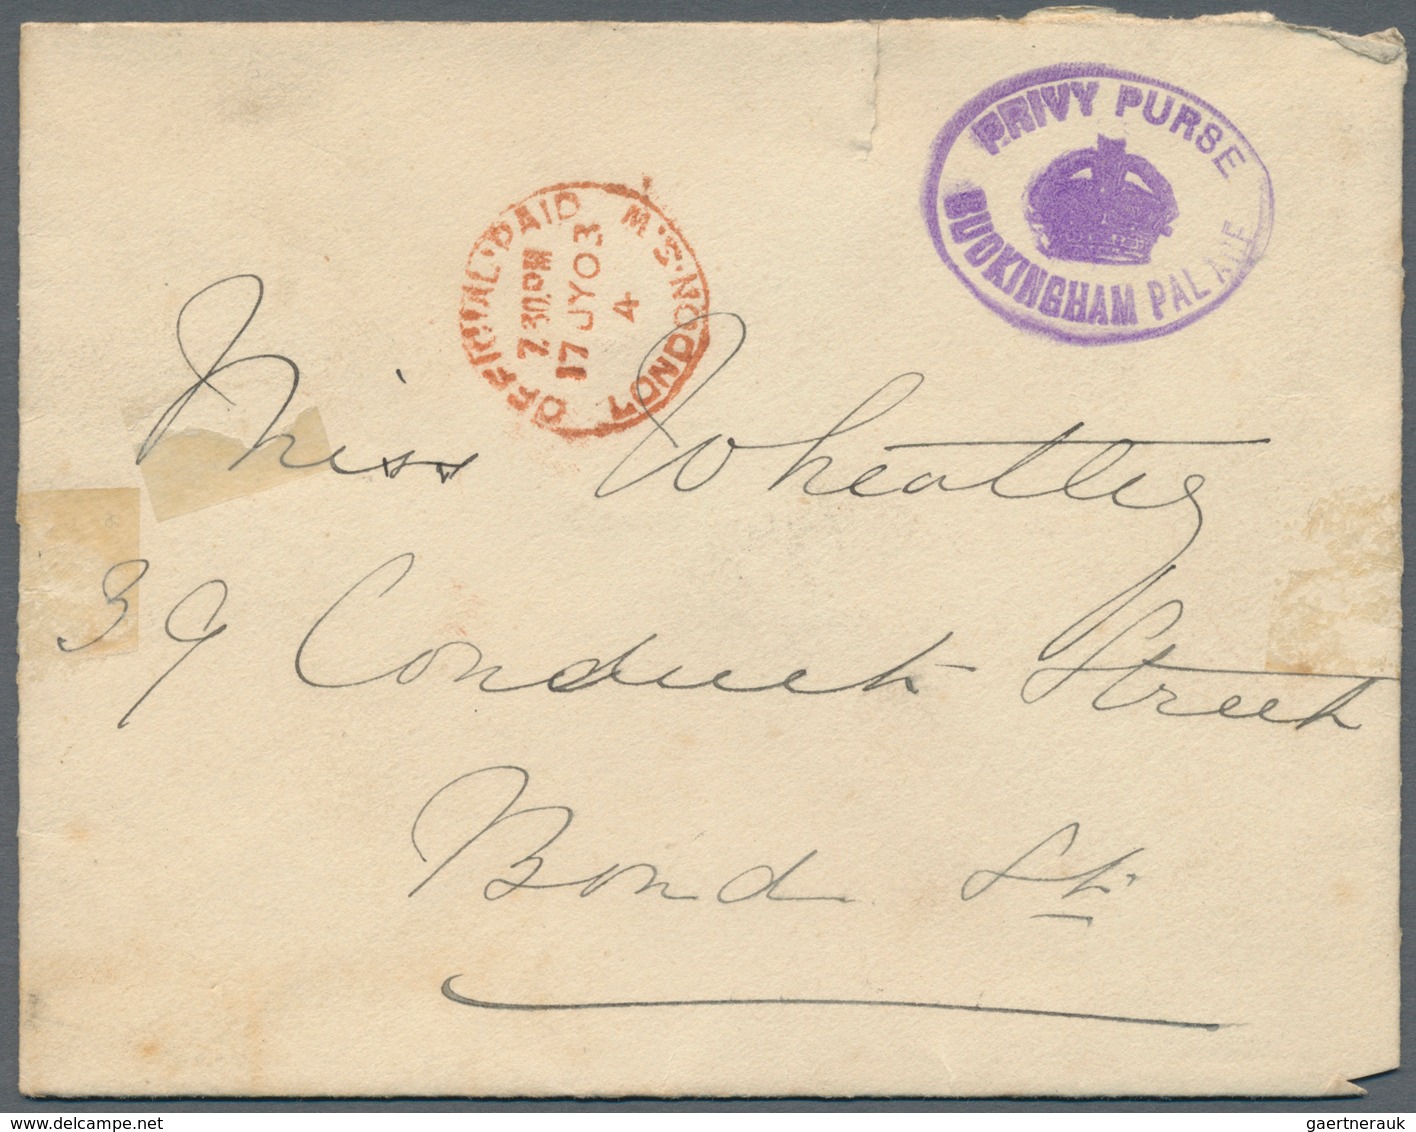 PRIVY PURSE
BUCKINGHAM PALACE
OFFICIAL·PAID
LONDON·S·W
7.30PM
17 JY 03
4
Miss Wheatley
39 Conduit Street
Bond St.
gaertnerauk